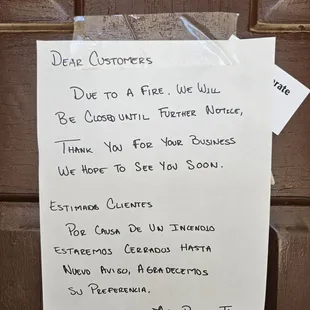 Dear Customers
Due to a Fire, We Will
Be Closed until Further Notice,
Thank You For Your Business
We Hope To See You Soon.
Estimado Clientes
Por Causa De Un Incendio
Estaremos Cerrados Hasta
Nuevo Aviso, Agradecemos
Su Preferencia.